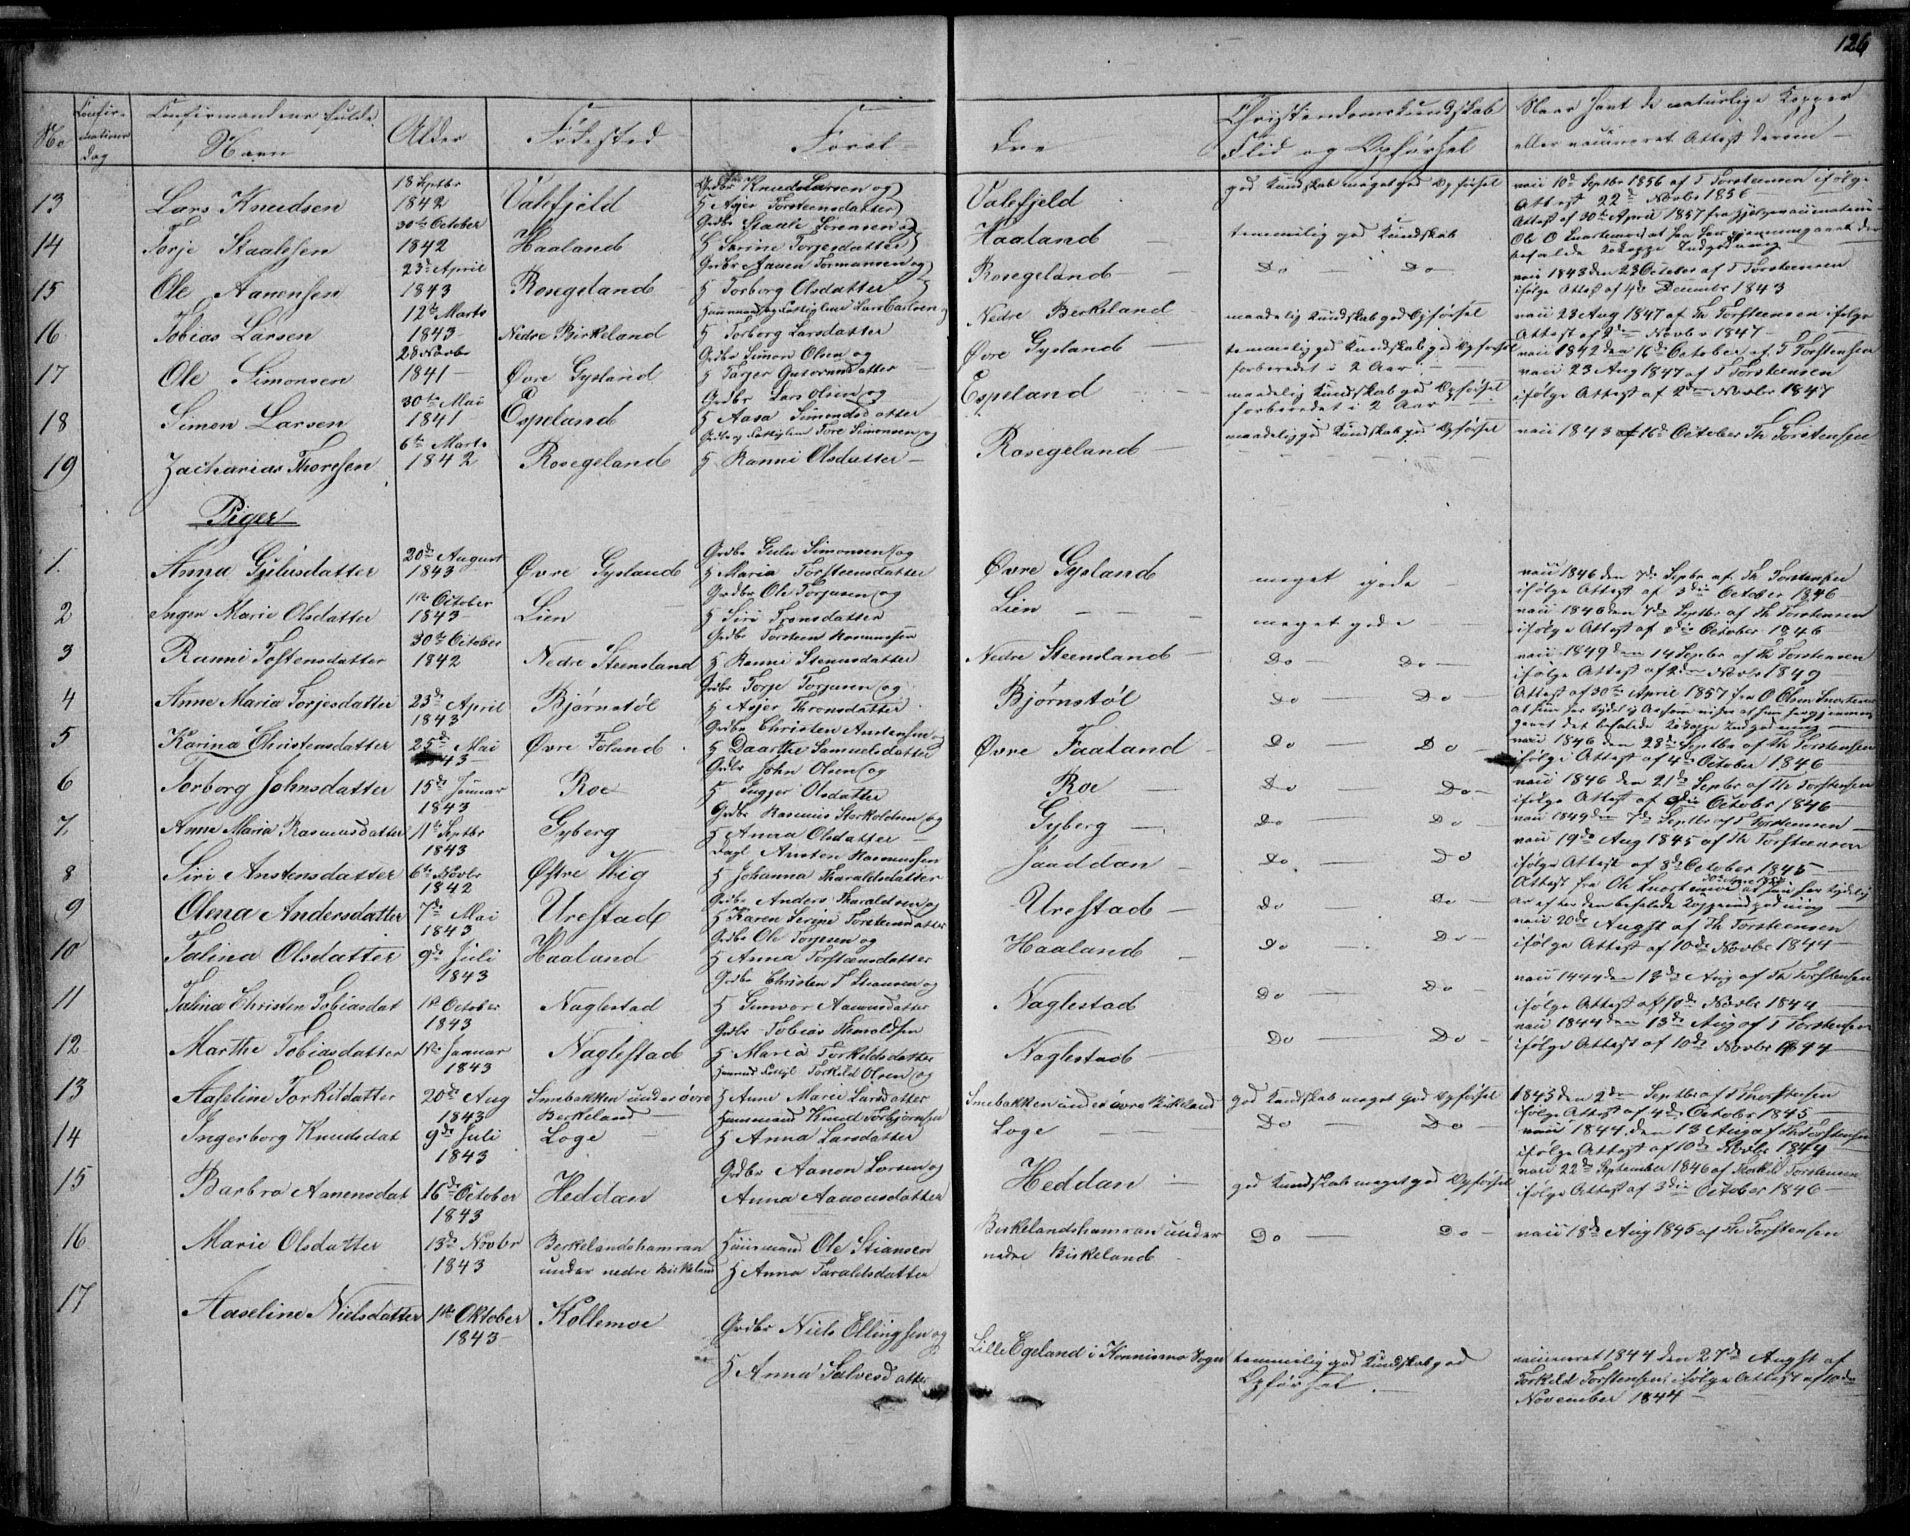 126
No
Confir-
mations
dag
Confirmandens fulde
Navn
Alder
Fødested
Foræl-
dre
Christendomskundskab
Flid og Opførsel
Naar havt de naturlige Kopper
eller vaccineret Attest derom
13 Lars Knudsen 18 Septbr 1842 Valefjeld Grdbr Knud Larsen og H Asjer Torsteensdatter Valefjeld god Kundskab meget god Opførsel vacc 10de Septbr 1856 af T Torsteensen ifølge
Attest 22de Novbr 1856
14 Torje Staalesen 30te October 1842 Haaland Grdbr Staale Sørensen og H Sarine Torjesdatter Haaland temmelig god Kundskab Attest af 30te April 1857 fra
15 Ole Aanensen 23de April 1843 Rosegeland Grdbr Aanen Tormunsen og H Torborg Olsdatter Rosegeland Do Do vacc 1843 den 23 October af T Torsteensen
ifølge Attest af 4de December 1843
16 Tobias Larsen 12te Marts 1843 Nedre Birkeland H Torborg Larsdatter Nedre Birkeland maadelig Kundskab god Opførsel vacc 23 Aug 1847 af Th Torsteensen ifølge
Attest af 2de Novbr 1847
17 Ole Simonsen 28 Novbr 1841 Øvre Gysland Grdbr Simon Olsen og H Tarjer Guttormsdatter Øvre Gysland temmelig god Kundskab god Opførsel
forberedet i 2 Aar vacc 1842 den 16de October af T Torstensen
18 Simen Larsen 30te Mai 1841 Espeland Grdbr Lars Olsen og H Aasa Simonsdatter Espeland maadelig Kundskab god Opførsel
forberedet i 2 Aar vacc 23 Aug 1847 af T Torsteensen
ifølge Attest af 2de Novbr 1847
19 Zacharias Thoresen 6te Marts 1842 Rosegeland Tore Simonsen og H Ranni Olsdatter Rosegeland maadelig god Kundskab god Opførsel vacc 1843 af 16de October Th Torstensen
Piger
1. Anna Gjelusdatter 20de August 1843 Øvre Gysland Grdbr Gjelu Simonsen og H Maria Torsteensdatter Øvre Gysland meget gode vacc 1846 den 7de Septbr af Th Torstensen
ifølge Attest af 3die October 1846
2 Inger Marie Olsdatter 1ste October 1843 Lien Grdbr Ole Torjusen og H Siri Tronsdatter Lien meget gode vacc 1846 den 7de Septbr af Th Torstensen
ifølge Attest af 3die October 1846
3 Ranni Tostensdatter 30te October 1842 Nedre Steensland Grdbr Torsteen Rasmussen H Ranni Stenusdatter Nedre Steensland Do Do vacc 1849 den 14 Septbr af Th Torstensen
ifølge Attest af 2de Novbr 1849
4 Anne Maria Torjesdatter 23de April 1843 Bjørnstøl Grdbr Torje Torjusen og H Asjer Thronsdatter Bjørnstøl Do Do Attest af 30te April 1857 fra O Olsen
5 Karina Christensdatter 25de Mai 1843 Øvre Foland Grdbr Christen Austensen og H Daarthe Samuelsdatter Øvre Faaland Do Do vacc 1846 den 28de Septbr af Th Torstensen
ifølge Attest af 4de October 1846
6 Torborg Johnsdatter 15de Januar 1843 Roe Grdbr John Olsen og H Ingjer Olsdatter Roe Do Do vacc 1846 den 21de Septbr af Th Torstensen
ifølge Attest af 3die Octobr 1846
7 Anne Maria Rasmusdatter 11te Septbr 1843 Gyberg Grdbr Rasmus Storkoldsen og H Anna Olsdatter Gyberg Do Do vacc 1849 den 7de Septbr af T Torstensen
8 Siri Austensdatter 6te Novbr 1842 Østre Hæg Dagl Austen Rasmussen H Johanna Tharaldsdatter Jaaddan Do Do vacc 19de Aug 1845 af Th Torstensen
ifølge Attest af 8de October 1845
9 Olena Andersdatter 7de Mai 1843 Urestad Grdbr Anders Tharaldsen og H Karen Serine Torstensdatter Urestad Do Do Attest fra Ole
10 Talina Olsdatter 9de Juli 1843 Haaland Grdbr Ole Torjesen og H Anna Torsteensdatter Haaland Do Do vacc 20de Augst af Th Torsteensen
ifølge Attest af 10de Novbr 1844
11 Talina Christen Tobiasdat 1ste October 1843 Naglestad Grdbr Christen T Stiansen og H Gunvor Aanensdatter Naglestad Do Do vacc 1444 den 13de Aug af Th Torstensen
ifølge Attest af 10de Novbr 1844
12 Marthe Tobiasdatter 1ste Januar 1843 Naglestad Grdbr Tobias H Maria Torkildsdatter Naglestad Do Do vacc 1844 den 13de Aug af T Torstensen
ifølge Attest af 10de Novbr 1844
13 Aaseline Torkildatter 20de Aug 1843 Smebakken under øvre
Berkeland Torkild Olsen og H Anne Marie Larsdatter Smebakken under øvre Birkeland god Kundskab meget god Opførsel 1843 den 2den Septbr af T Thorstensen
ifølge Attest af 4de October 1845
14 Ingerborg Knudsdat 9de Juli 1843 Loge Huusmand Knud Torbjørnsen H Anna Larsdatter Loge Do Do vacc 1844 den 13 Aug af Th Torstensen
ifølge Attest af 10de Novbr 1844
15 Barbro Aanensdat 16de October 1843 Heddan Grdbr Aanon Larsen og Anna Aanonsdatter Heddan god Kundskab meget god Opførsel vacc 22de September 1846 af Thorkild Torstensen
ifølge Attest af 3die October 1846
16 Marie Olsdatter 13de Novbr 1843 Berkelandshamran
under nedre Birkeland Huusmand Ole Stiansen H Anna Taraldsdatter Birkelandshamran under
nedre Birkeland Do Do vacc 18de Aug 1845 af Th Torstensen
17 Aaseline Nielsdatter 1ste Oktober 1843 Kollemoe Grdbr Niels Ellingsen og H Anna Salvesdatter Lille Egeland i Konnismo Sogn temmelig god Kundskab god
Opførsel vaccineret 1844 den 27de Augst af
Torkild Torstensen ifølge Attest af 10de
November 1844